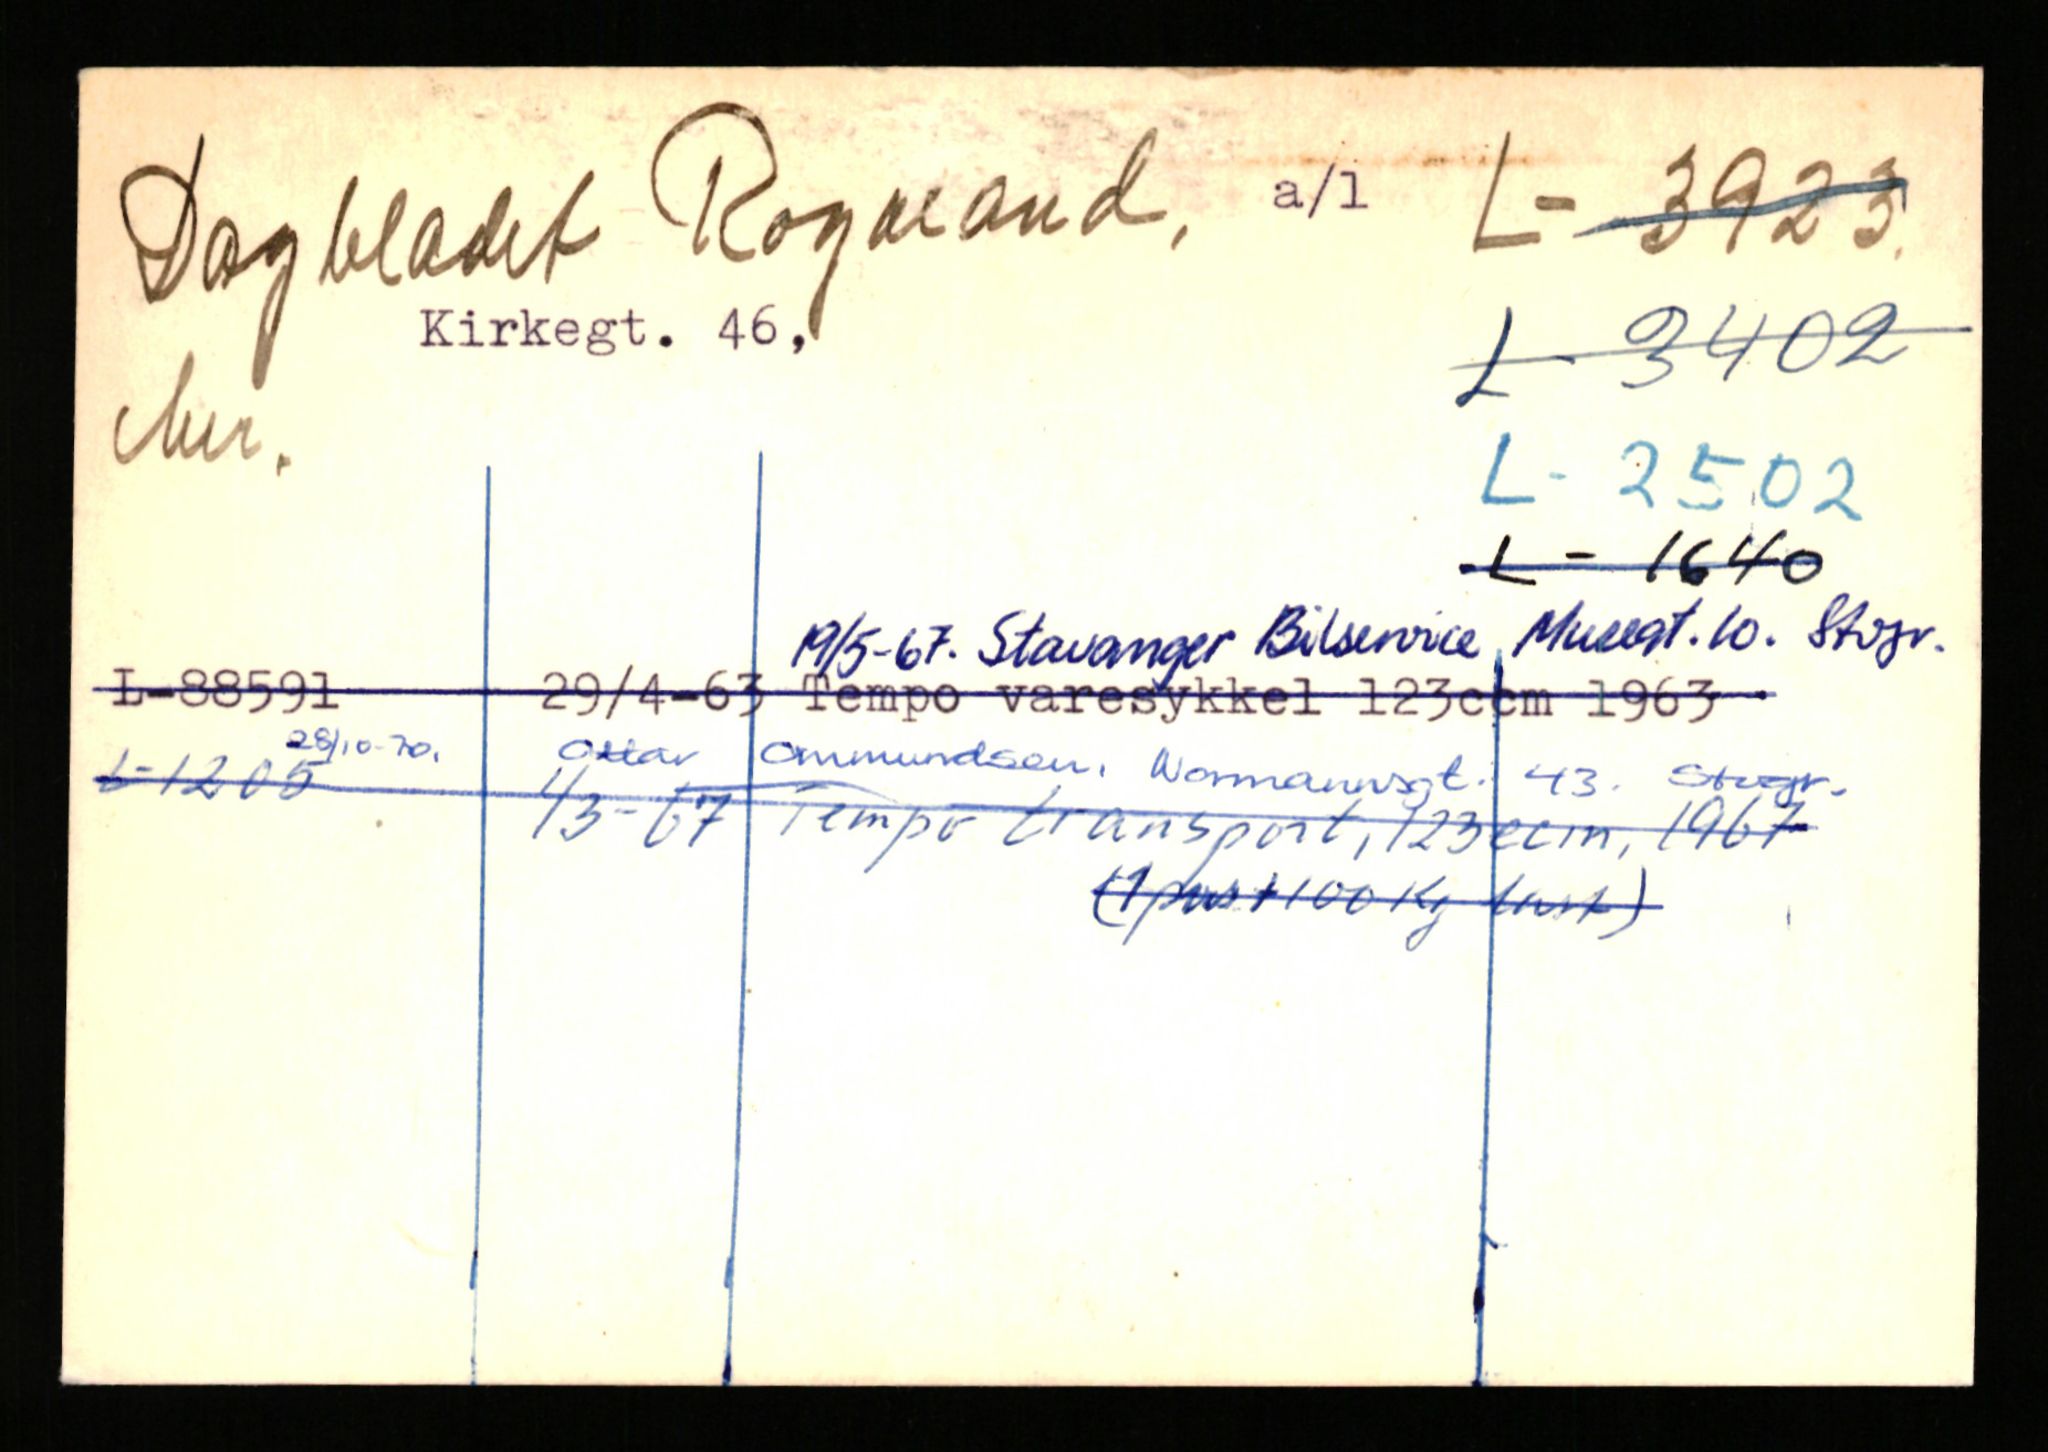 Dagbladet Rogaland, a/l L- 3923.
Kirkegt. 46, L- 3402
her.
L- 2502
L- 1640
19/5-67. Stavanger Bilservice, Musegt. 10. Stvgr.
L-88591 29/4-63 Tempo varesykkel 123ccm 1963
28/10-70. Ottar Ommundsen, Normannsgt. 43. Stvgr.
L-1205 4/3-67 Tempo transport, 123ccm, 1967
(1 pers + 100 Kg last)